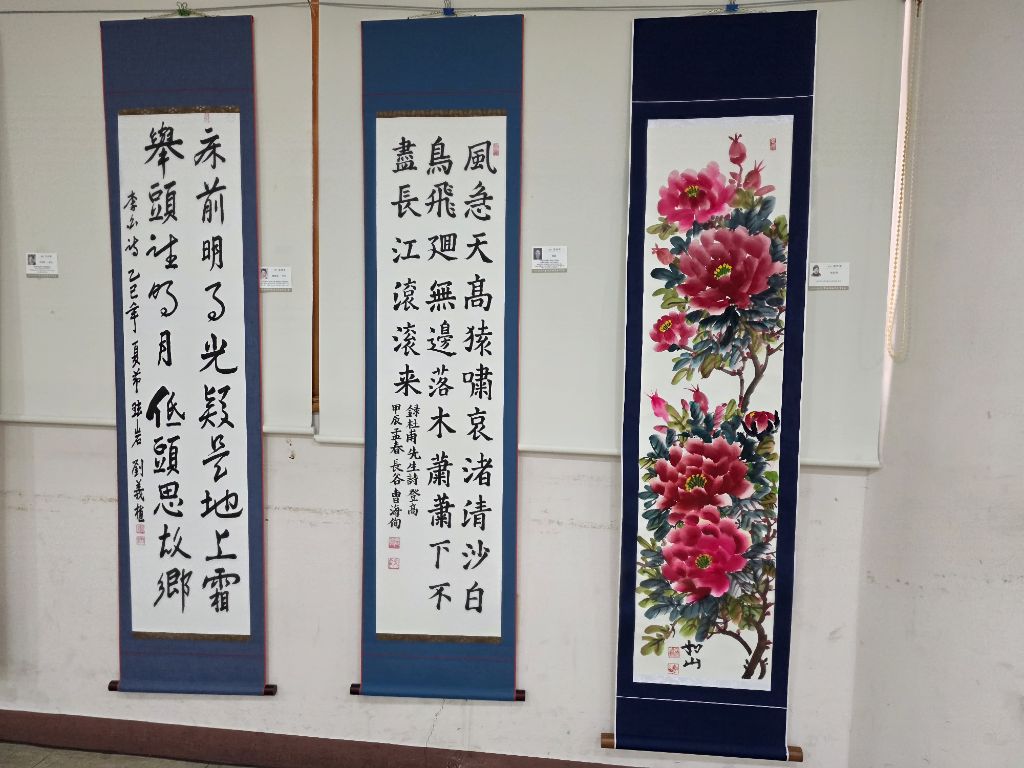 床前明月光疑是地上霜
舉頭望明月低頭思故鄉
李白詩 乙巳年夏節 岩 劉義權
風急天髙猿嘯哀渚清沙白
鳥飛廻無邊落木蕭蕭下不
盡長江滾滾来
録杜甫先生詩 登髙
甲辰孟春 長谷 曺海
山